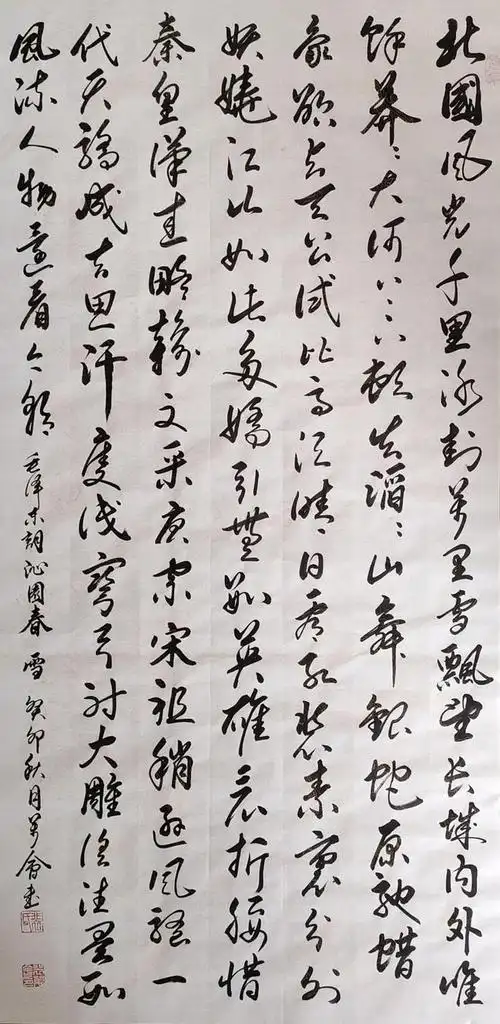 北國风光千里冰封萬里雪飄望长城内外唯
餘莽莽大河上下顿失滔滔山舞銀蛇原驰蜡
象欲与天公试比高须晴日看红装素裹分外
妖嬈江山如此多嬌引無数英雄竞折腰惜
秦皇漢武略輸文采唐宗宋祖稍逊风骚一
代天骄成吉思汗隻识彎弓射大雕俱往矣数
風流人物還看今朝 毛泽东詞沁園春 雪 癸卯秋月萬會书